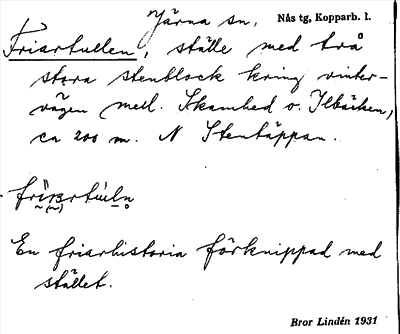 Järna sn, Nås tg, Kopparb. l.
Friartullen, ställe med två
stora stenblock kring vinter-
vägen mell. Skamhed o. Ilbäcken,
ca 200 m. N Stentäppan.
En friarhistoria förknippad med
stället.
Bror Lindén 1931